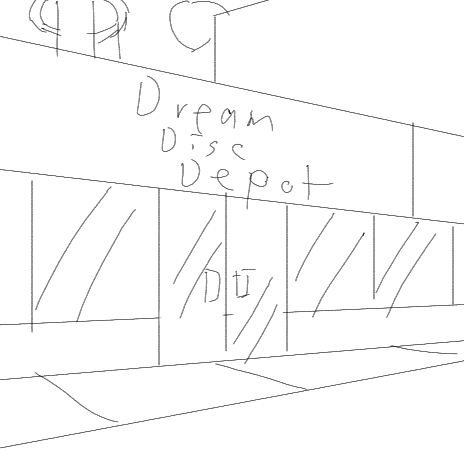 Dream
Disc
Depot